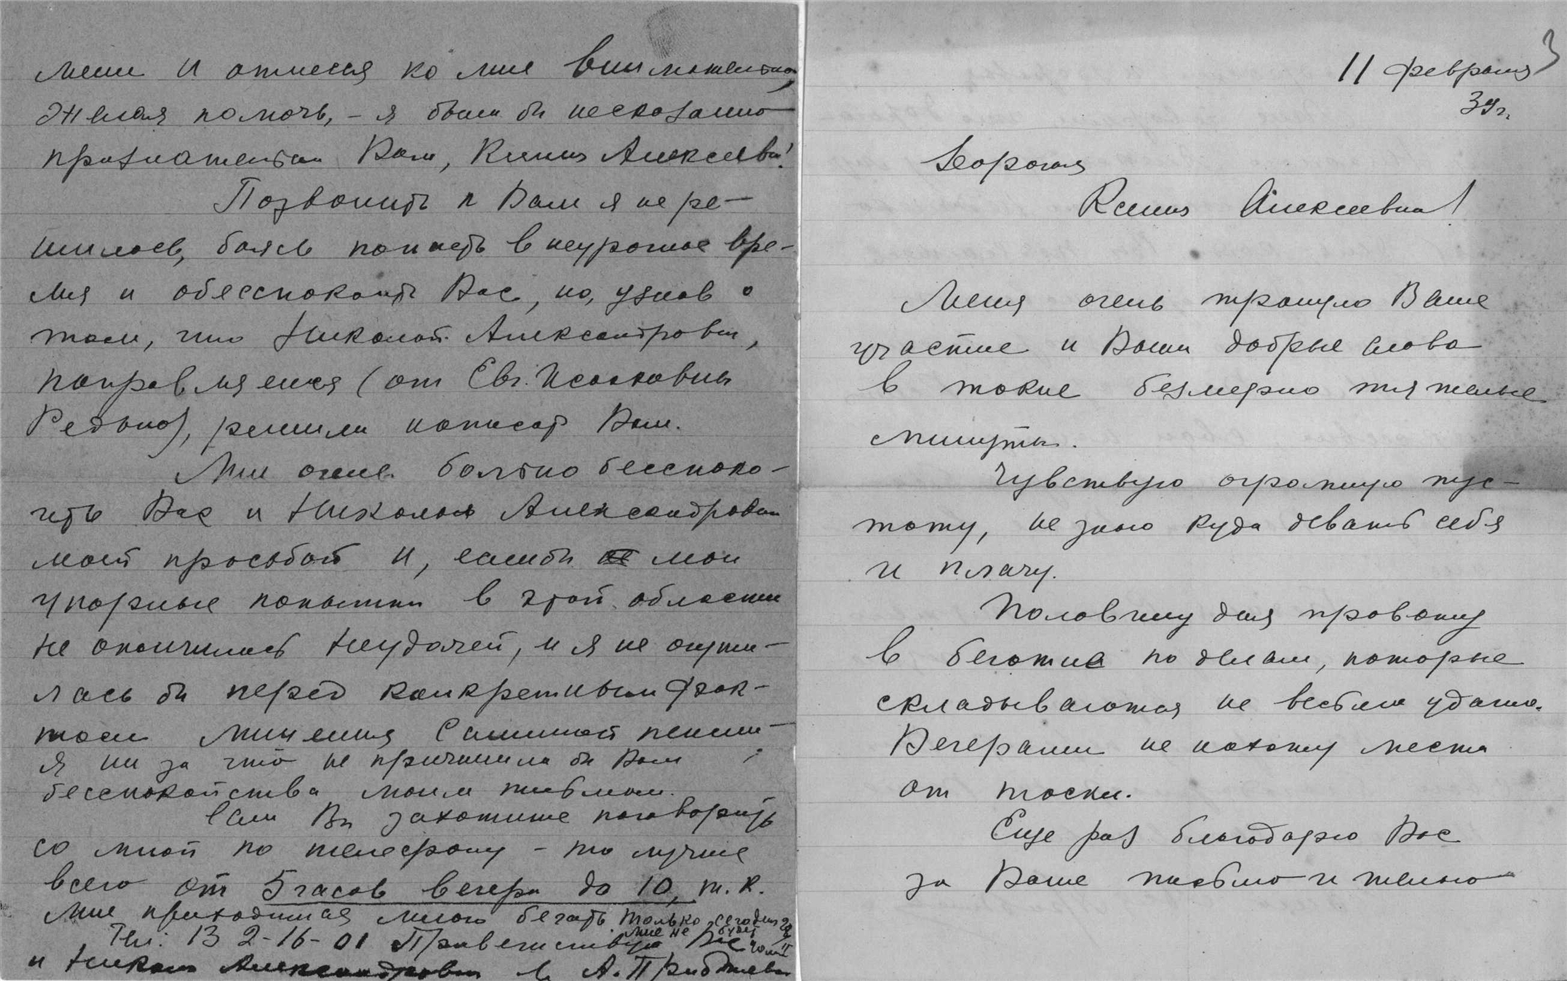 меня и отнесся ко мне внимательно,
желая помочь, – я была бы несказанно
признательна Вам, Ксения Алексеевна!
Позвонить к Вам я не ре–
шилась, боясь попасть в неурочное вре–
мя и обеспокоить Вас, но, узнав о
том, что Николай Александрович,
поправляется (от Евг. Исааковны
), решила написать Вам.
Мне очень больно бесспоко–
ить Вас и Николая Александровича
моей просьбой и, еслибы мои
упорные попытки в этой области
не окончились неудачей, и я не очути–
лась бы перед конкретным фак–
том лишения пенсии –
я ни за что не причинила бы Вам
бесспокойства моим письмом.
Если Вы захотите поговорить
со мной по телефону – то лучше
всего от 5 часов вечера до 10, т.к.
мне приходится много бегать. Только сегодня
мне не будет
Тел: В 2-16-01 Приветствую Вас
и Николая Александровича
3
11 февраля
39г.
Дорогая
Ксения Алексеевна!
Меня очень тронуло Ваше
участие и Ваши добрые слова
в такие безмерно тяжелые
минуты.
Чувствую огромную пус–
тоту, не знаю куда девать себя
и плачу.
Половину дня провожу
в беготне по делам, которые
складываются не весьма удачно.
Вечерами не нахожу места
от тоски.
Еще раз благодарю Вас
за Ваше письмо и